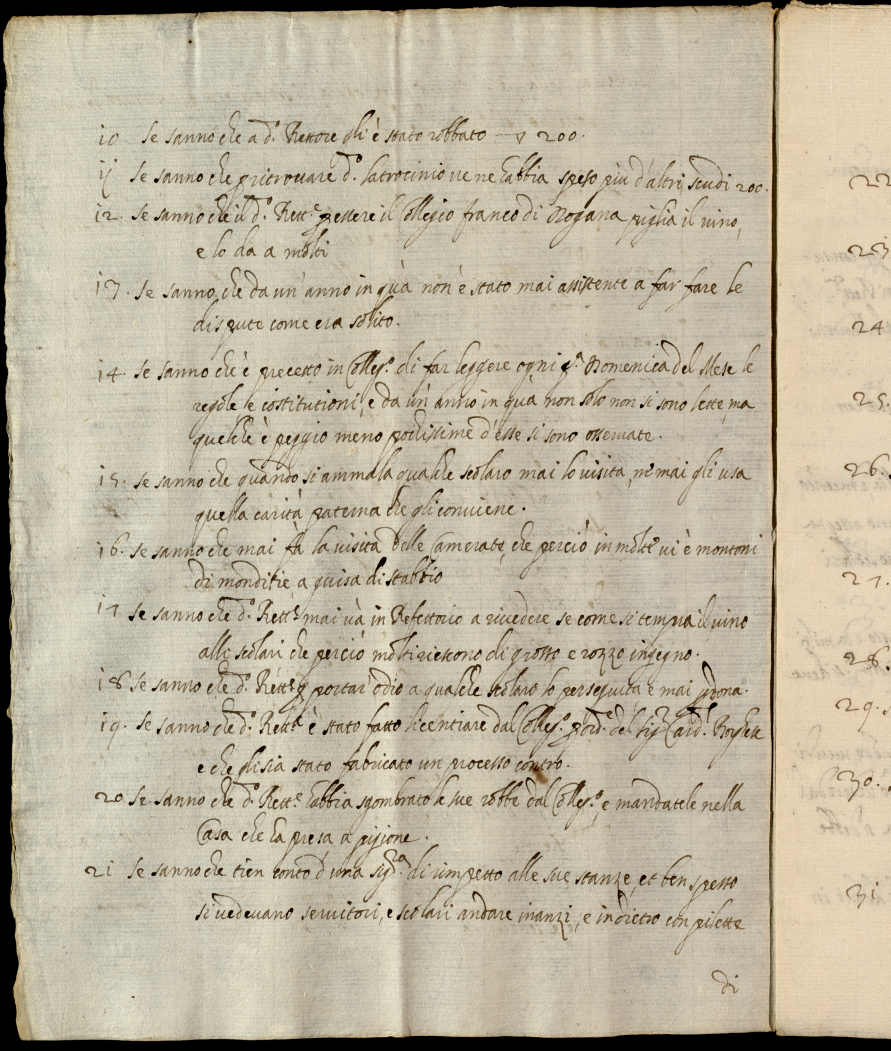 10. Se sanno che a d.º Rettore gli è stato robbato — ▽ 200.
ij Se sanno che p ritrovare d.º latrocinio ve ne habbia speso più d'altri scudi 200.
12. Se sanno che il d.º Rett.e p essere il Collegio franco di Dogana piglia il vino,
e lo da a molti
13. Se sanno, che da un'anno in quà non è stato mai assistente a far fare le
dispute come era solito.
14. Se sanno che è precetto in Colleg.º di far leggere ogni p.ª Domenica del Mese le
regole e costitutioni, e da un'anno in quà non solo non si sono lette, ma
quelche è peggio meno pochissime d'esse si sono osservate.
15. Se sanno che quando si ammala qualche scolaro mai lo visita, ne mai gli usa
quella carità paterna che gli conviene.
16. Se sanno che mai fa la visita delle Camerate, che perciò in molte vi è montoni
di monditie a guisa di stabbio
17 Se sanno che d.º Rett.e mai và in Refettorio a rivedere se come si tempra il vino
alli scolari che perciò molti riescono di grosso e rozzo ingegno.
18 Se sanno che d.º Rett.e p portar odio a qualche scolaro lo perseguita e mai pdona.
19. Se sanno che d.º Rett.e è stato fatto licentiare dal Colleg.º p ord.e del Sig.r Card.l Borghese
e che gli sia stato fabricato un processo contro.
20 Se sanno che d.º Rett.e habbia sgombrato le sue robbe dal Colleg.º, e mandatele nella
Casa che ha presa a pigione.
21 Se sanno che tien conto d'una Sig.ra di rimpetto alle sue stanze, et ben spesso
si vedevano servitori, e scolari andare inanzi, e indietro con pilette
di
22
23
24
25.
26.
27.
28.
29.
30.
31